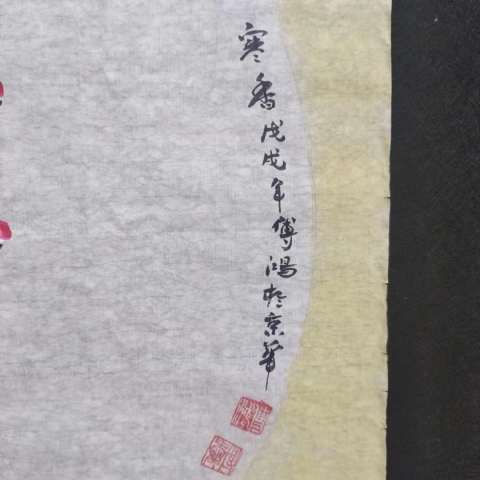 寒香戊戌年傅鴻於京華